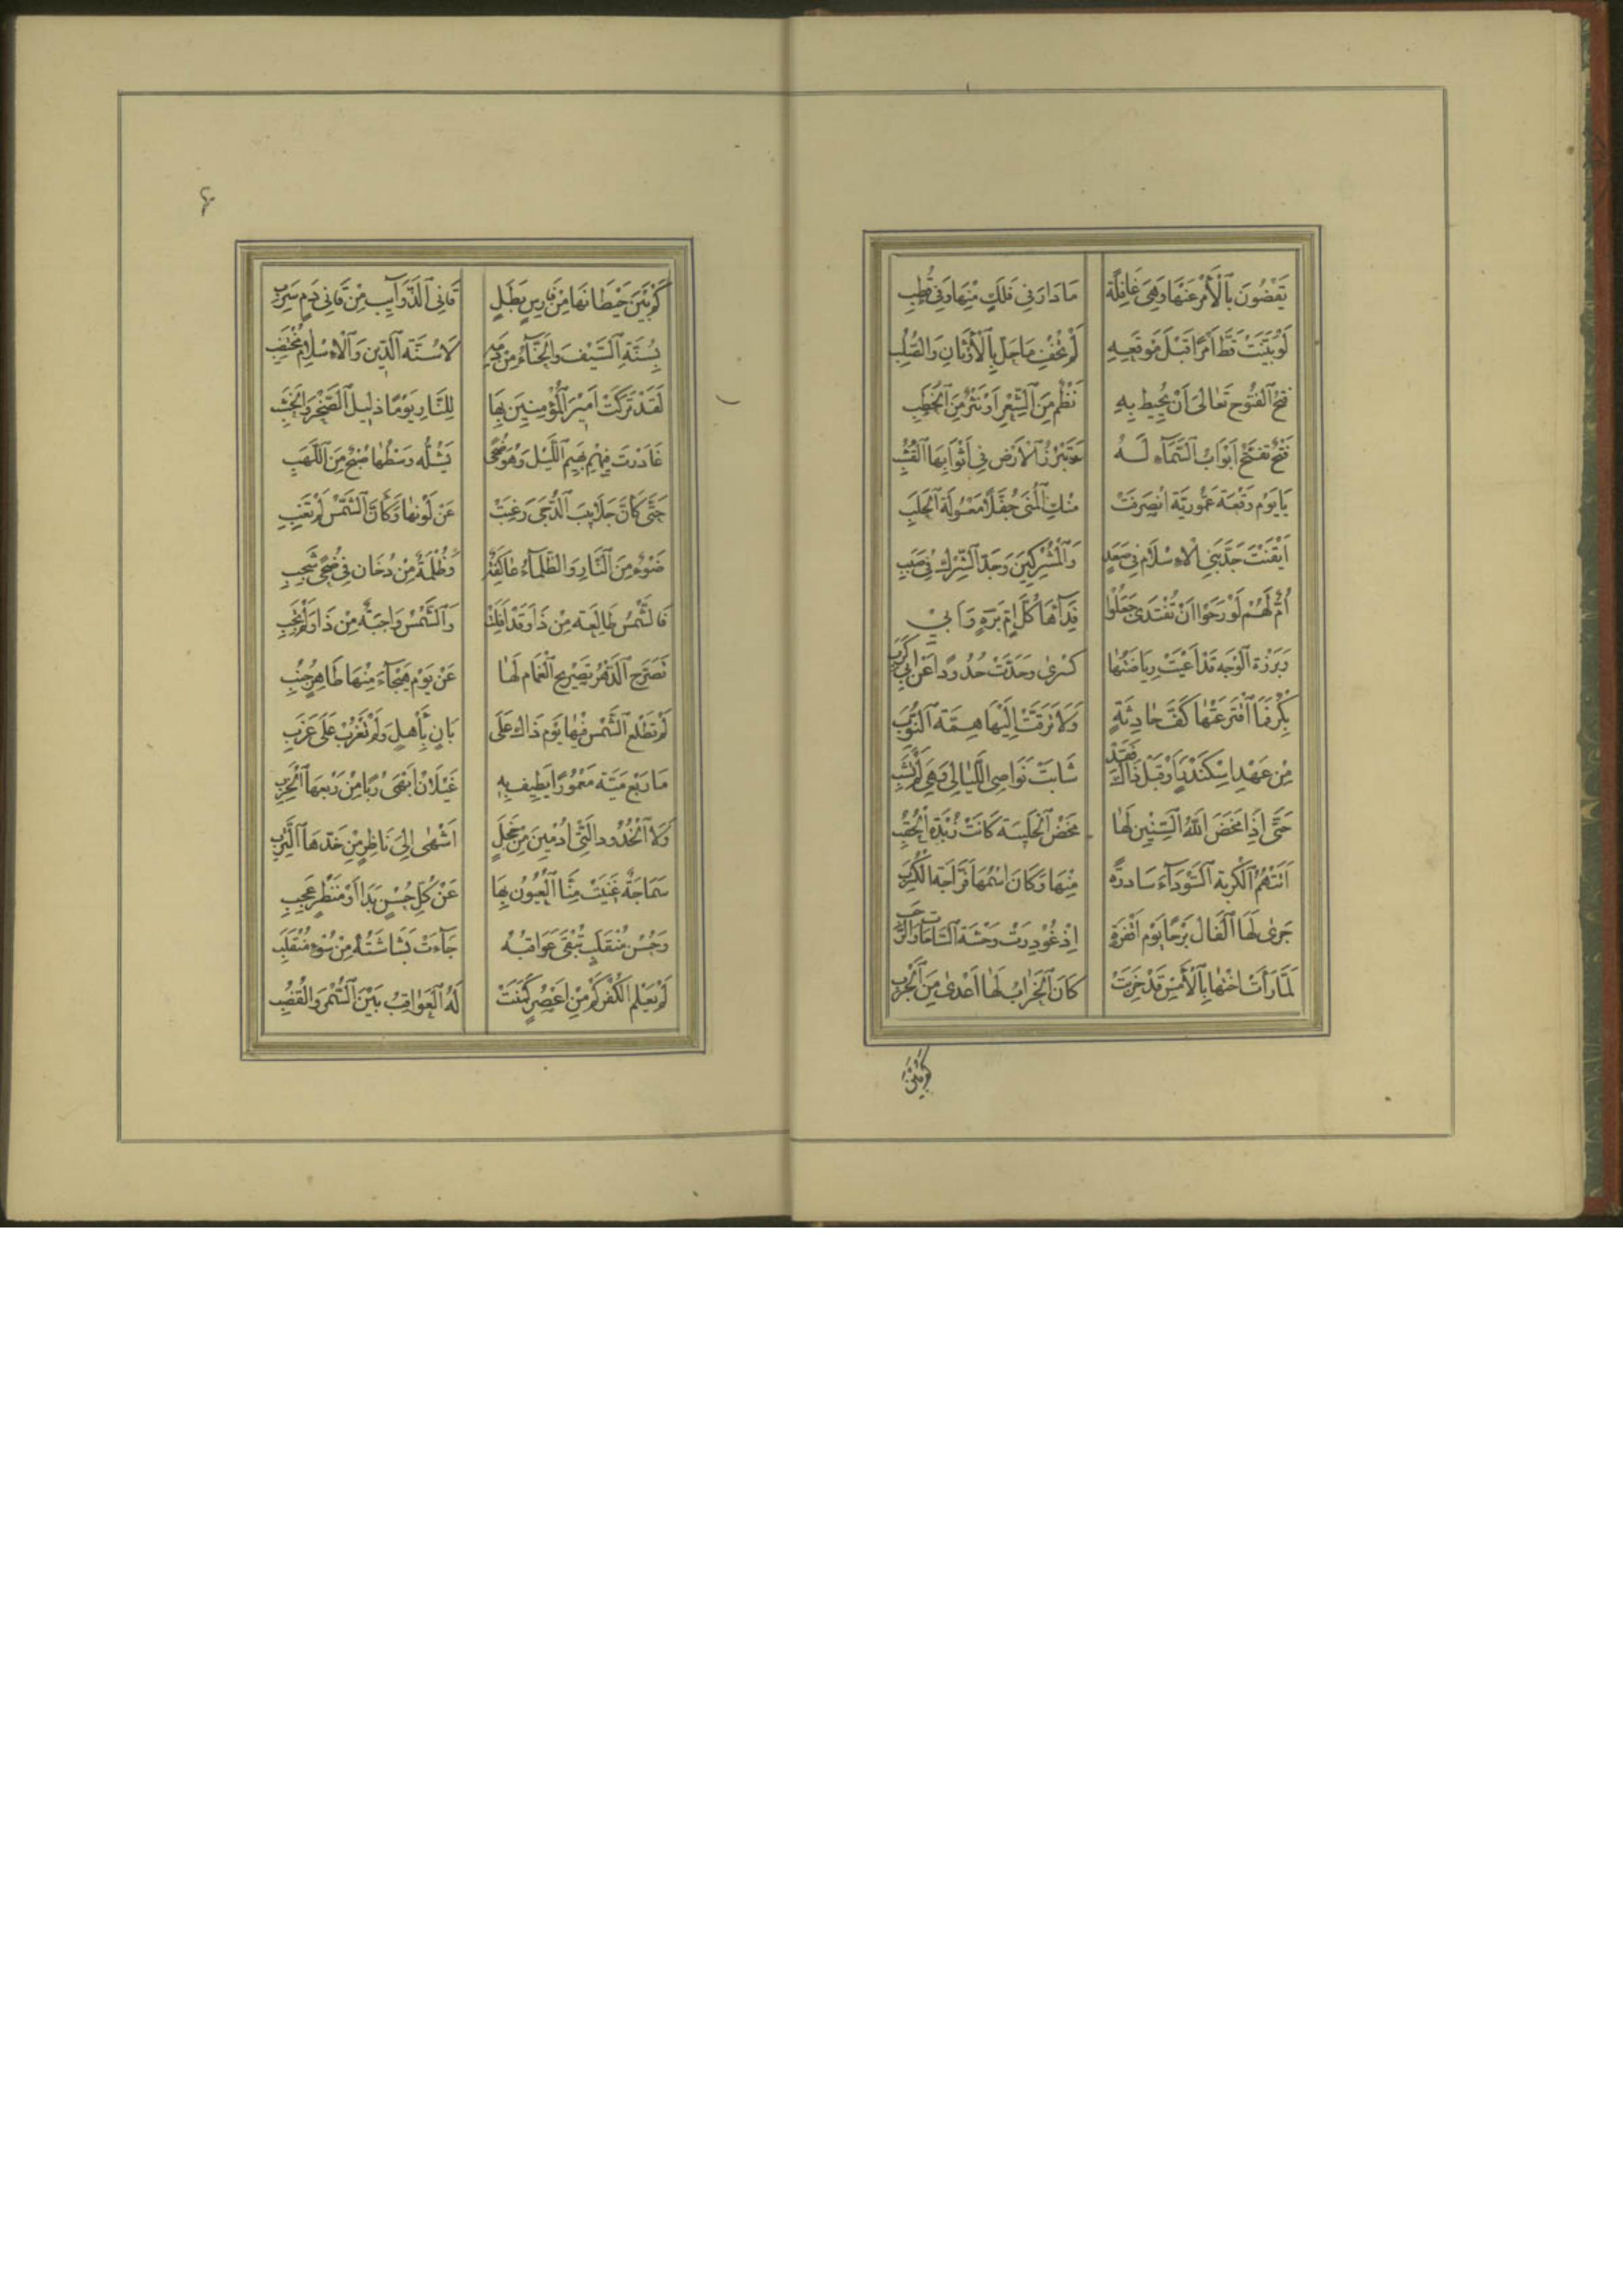 يَقْضُونَ بِٱلْأَمْرِ عَنْهَا وَهِىَ غَافِلَةٌ مَا دَارَ فِى فَلَكٍ مِنْهَا وَفِى قُطُبِ
لَوْ بَيَّنَتْ قَطُّ اَمْرًا قَبْلَ مَوْقِعِهِ لَمْ يَخْفَ مَا حَلَّ بِٱلْأَوْثَانِ وَالصُّلُبِ
فَتْحُ ٱلْفُتُوحِ تَعَالىَ اَنْ يُحِيطَ بِهِ نَظْمٌ مِنَ ٱلشِّعْرِ اَوْ نَثْرٌ مِنَ ٱلْخُطَبِ
فَتْحٌ تَفَتَّحُ اَبْوَابُ ٱلسَّمَآءِ لَهُ وَتَبْرُزُ ٱلْأَرْضُ فِى أَثْوَابِهَا ٱلْقُشُبِ
يَا يَوْمَ وَقْعَةِ عَمُّورِيَّةَ انْصَرَفَتْ مِنْكَ ٱلْمُنَى حُفَّلًا مَعْسُولَةَ ٱلْحَلَبِ
اَبْقَيْتَ جَدَّ بَنِى ٱلْاِسْلَامِ فِى صَعَدٍ وَٱلْمُشْرِكِينَ وَجَدَّ ٱلشِّرْكِ فِى صَبَبِ
اُمٌّ لَهُمْ لَوْ رَجَوْا اَنْ تُفْتَدَى جَعَلُوا فِدَآءَهَا كُلَّ اُمٍّ بَرَّةٍ وَاَبِ
وَبَرْزَةِ ٱلْوَجْهِ قَدْ اَعْيَتْ رِيَاضَتُهَا كِسْرَى وَصَدَّتْ صُدُودًا عَنْ اَبِى كَرِبِ
بِكْرٌ فَمَا ٱفْتَرَعَتْهَا كَفُّ حَادِثَةٍ وَلَا تَرَقَّتْ اِلَيْهَا هِمَّةُ ٱلنُّوَبِ
مِنْ عَهْدِ اِسْكَنْدَرٍ اَوْ قَبْلَ ذَاكَ فَقَدْ شَابَتْ نَوَاصِى ٱللَّيَالِى وَهِىَ لَمْ تَشِبِ
حَتَّى اِذَا مَخَضَ ٱللّٰهُ ٱلسِّنِينَ لَهَا مَخْضَ ٱلْحَلِيبَةِ كَانَتْ زُبْدَةَ ٱلْحِقَبِ
اَتَتْهُمُ ٱلْكُرْبَةُ ٱلسَّوْدَآءُ سَادِرَةً مِنْهَا وَكَانَ اسْمُهَا فَرَّاجَةَ ٱلْكُرَبِ
جَرَى لَهَا ٱلْفَالُ بَرْحًا يَوْمَ اَنْقَرَةٍ اِذْ غُودِرَتْ وَحْشَةَ ٱلسَّاحَاتِ وَالرَّحَبِ
لَمَّا رَأَتْ اُخْتَهَا بِٱلْأَمْسِ قَدْ خَرِبَتْ كَانَ ٱلْخَرَابُ لَهَا اَعْدَى مِنَ ٱلْجَرَبِ
كَمْ بَيْنَ
٤
كَمْ بَيْنَ حِيطَانِهَا مِنْ فَارِسٍ بَطَلٍ قَانِى ٱلذَّوَآيِبِ مِنْ قَانِى دَمٍ سَرِبِ
بِسُنَّةِ ٱلسَّيْفِ وَالْحِنَّآءُ مِنْ دَمِهِ لَا سُنَّةِ ٱلدِّينِ وَٱلْاِسْلَامِ مُخْتَضِبِ
لَقَدْ تَرَكْتَ اَمِيرَ ٱلْمُؤْمِنِينَ بِهَا لِلنَّارِ يَوْمًا ذَلِيلَ ٱلصَّخْرِ وَٱلْخَشَبِ
غَادَرْتَ فِيهِمْ بَهِيمَ ٱللَّيْلِ وَهْوَ ضُحًى يَشُلُّهُ وَسْطَهَا صُبْحٌ مِنَ ٱللَّهَبِ
حَتَّى كَأَنَّ جَلَابِيبَ ٱلدُّجَى رَغِبَتْ عَنْ لَوْنِهَا وَكَأَنَّ ٱلشَّمْسَ لَمْ تَغِبِ
ضَوْءٌ مِنَ ٱلنَّارِ وَٱلظَّلْمَآءُ عَاكِفَةٌ وَظُلْمَةٌ مِنْ دُخَانٍ فِى ضُحًى شَحِبِ
فَالشَّمْسُ طَالِعَةٌ مِنْ ذَا وَقَدْ اَفَلَتْ وَٱلشَّمْسُ وَاجِبَةٌ مِنْ ذَا وَلَمْ تَجِبِ
تَصَرَّحَ ٱلدَّهْرُ تَصْرِيحَ ٱلْغَمَامِ لَهَا عَنْ يَوْمِ هَيْجَآءَ مِنْهَا طَاهِرٍ جُنُبِ
لَمْ تَطْلُعِ ٱلشَّمْسُ فِيهَا يَوْمَ ذَاكَ عَلَى بَانٍ بِأَهْلٍ وَلَمْ تَغْرُبْ عَلَى عَزَبِ
مَا رَبْعُ مَيَّةَ مَعْمُورًا يُطِيفُ بِهِ غَيْلَانُ اَبْهَى رُبًا مِنْ رَبْعِهَا ٱلْخَرِبِ
وَلَا ٱلْخُدُودُ وَالَّتِى اُدْمِينَ مِنْ خَجَلٍ اَشْهَى اِلَى نَاظِرٍ مِنْ خَدِّهَا ٱلتَّرِبِ
سَمَاجَةٌ غَنِيَتْ مِنَّا ٱلْعُيُونُ بِهَا عَنْ كُلِّ حُسْنٍ بَدَا اَوْ مَنْظَرٍ عَجِبِ
وَحُسْنُ مُنْقَلَبٍ تَبْقَى عَوَاقِبُهُ جَآءَتْ بَشَاشَتُهُ مِنْ سُوءِ مُنْقَلَبِ
لَوْ يَعْلَمُ ٱلْكُفْرُ كَمْ مِنْ اَعْصُرٍ كَمَنَتْ لَهُ ٱلْعَوَاقِبُ بَيْنَ ٱلسُّمْرِ وَالْقُضُبِ